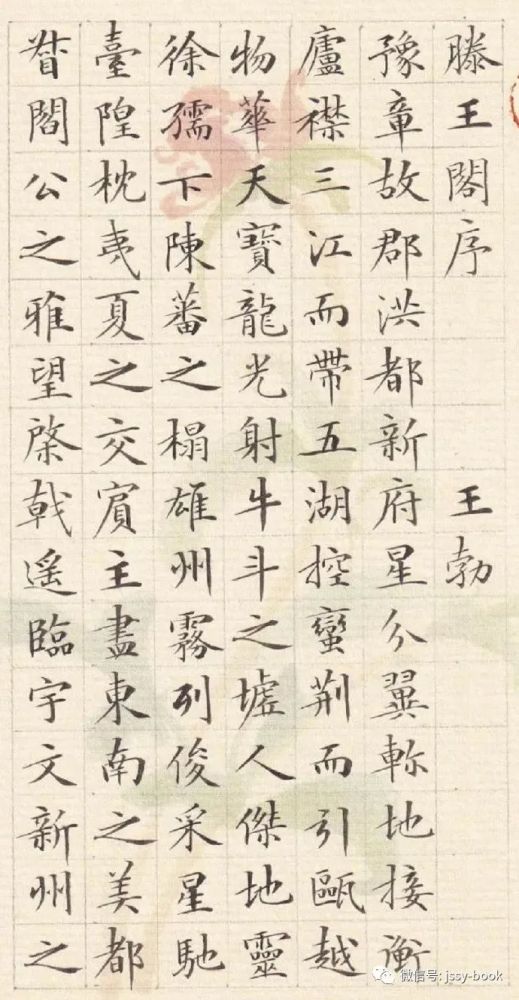 滕王閣序 王勃
豫章故郡洪都新府星分翼軫地接衡
廬襟三江而帶五湖控蠻荆而引甌越
物華天寶龍光射牛斗之墟人傑地靈
徐孺下陳蕃之榻雄州霧列俊采星馳
臺隍枕夷夏之交賓主盡東南之美都
督閻公之雅望棨戟遥臨宇文新州之
微信号: jssy-book